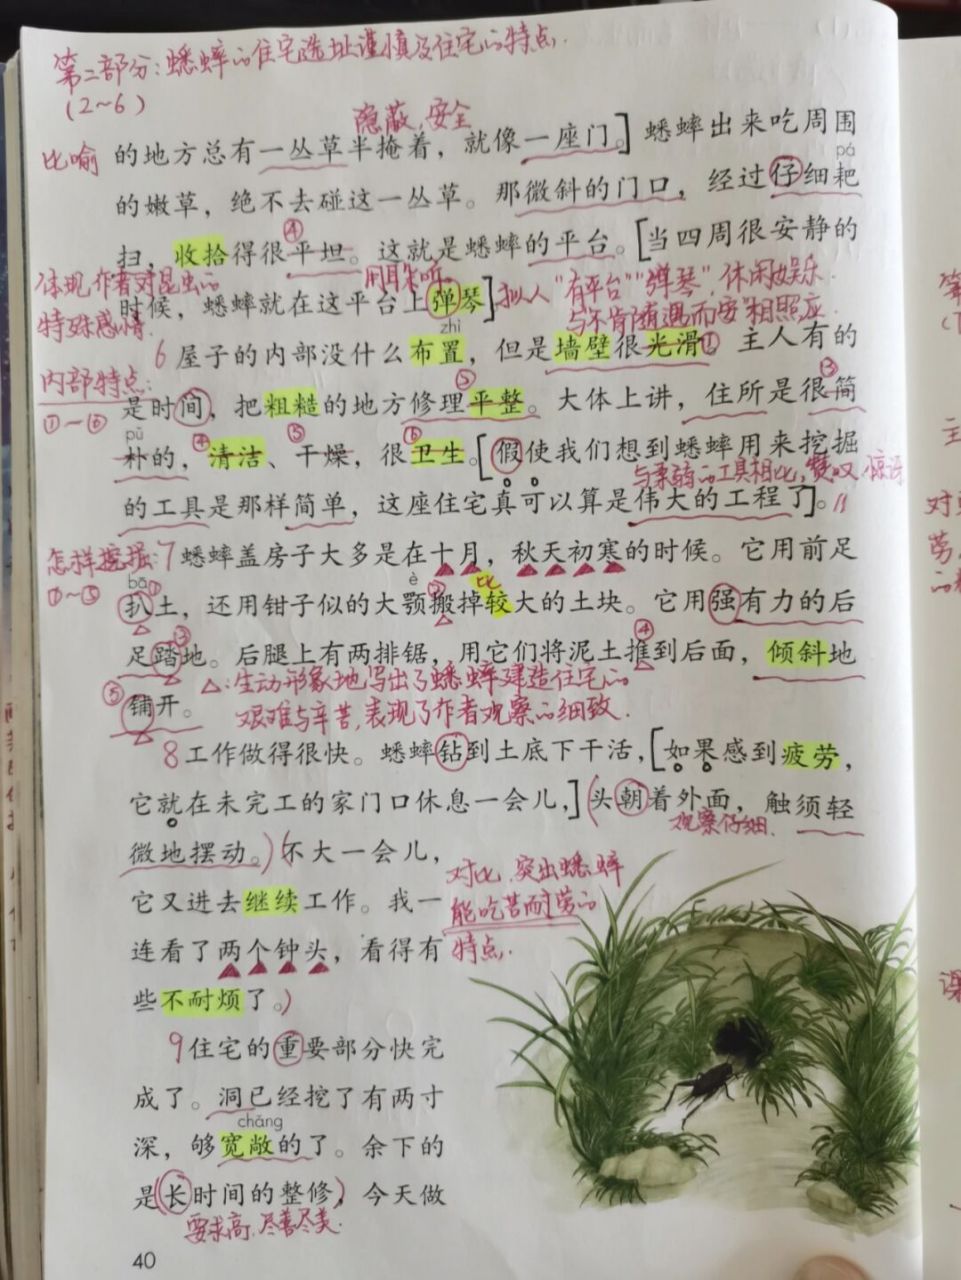 第二部分:蟋蟀的住宅选址谨慎及住宅的特点.
(2~6)
隐蔽、安全
比喻
的地方总有一丛草半掩着，就像一座门。]蟋蟀出来吃周围
pá
的嫩草，绝不去碰这一丛草。那微斜的门口，经过仔细耙
④
扫，收拾得很平坦。这就是蟋蟀的平台。[当四周很安静的
体现作者对昆虫的
特殊感情.
用用来听.
时候，蟋蟀就在这平台上弹琴]
拟人 "有平台""弹琴"，休闲娱乐.
与不肯"随遇而安"相照应.
zhì
6屋子的内部没什么布置，但是墙壁很光滑①。主人有的
内部特点:
①~⑥
⑤ ③
是时间，把粗糙的地方修理平整。大体上讲，住所是很简
pǔ ④ ⑤ ⑥
朴的，清洁、干燥，很卫生。[假使我们想到蟋蟀用来挖掘
与柔弱的工具相比，赞叹 惊讶
的工具是那样简单，这座住宅真可以算是伟大的工程了]。//
怎样挖掘:
①~⑤
7蟋蟀盖房子大多是在十月，秋天初寒的时候。它用前足
bā ① è ② 比
扒土，还用钳子似的大颚搬掉较大的土块。它用强有力的后
③ ④
足踏地。后腿上有两排锯，用它们将泥土推到后面，倾斜地
△:生动形象地写出了蟋蟀建造住宅的
⑤
铺开。
艰难与辛苦，表现了作者观察的细致.
8工作做得很快。蟋蟀钻到土底下干活，[如果感到疲劳，
它就在未完工的家门口休息一会儿，](头朝着外面，触须轻
观察仔细.
微地摆动。)(不大一会儿，
它又进去继续工作。我一
连看了两个钟头，看得有
些不耐烦了。)
对比，突出蟋蟀
能吃苦耐劳的
特点.
9住宅的重要部分快完
成了。洞已经挖了有两寸
chǎng
深，够宽敞的了。余下的
是(长时间的整修)，今天做
要求高，尽善尽美.
40